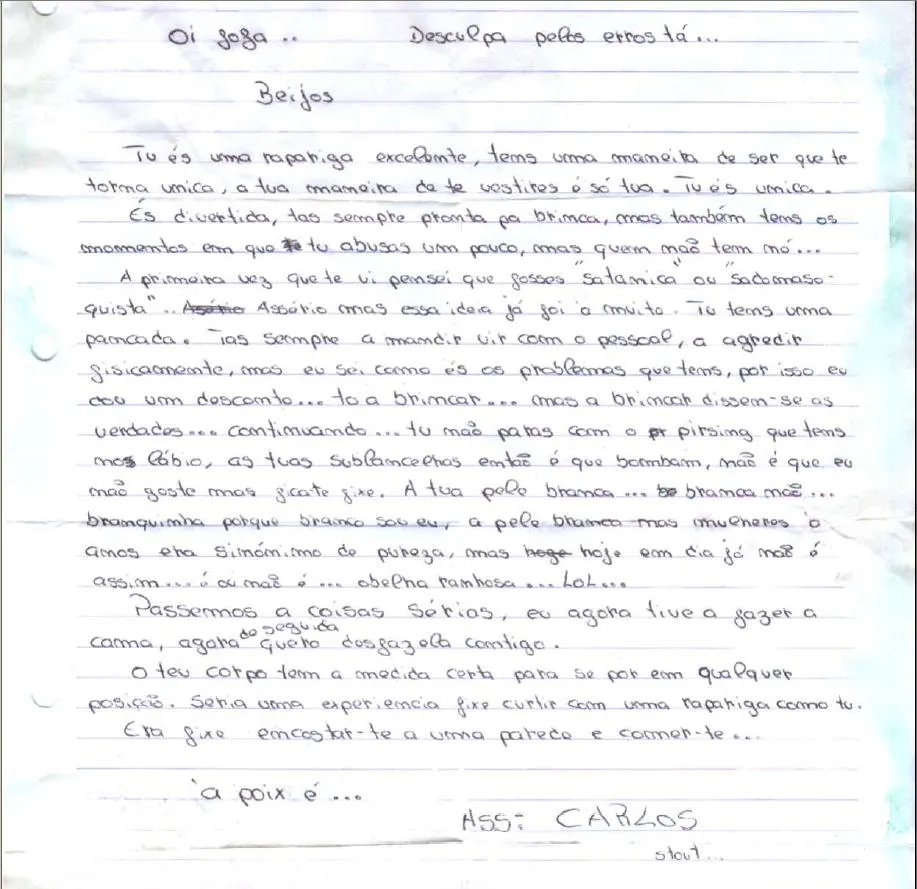 Oi fofa.. Desculpa pelos erros tá...
Beijos
Tu és uma rapariga excelente, tens uma maneira de ser que te
torna unica, a tua maneira de te vestires é só tua. Tu és unica.
És divertida, tas sempre pronta pa brinca, mas também tens os
momentos em que te tu abusas um pouco, mas quem não tem nó...
A primeira vez que te vi pensei que fosses "satanica" ou "sadomaso-
quista".. Assério Assério mas essa ideia já foi à muito. Tu tens uma
pancada. Tas sempre a mandir vir com o pessoal, a agredir
fisicamente, mas eu sei como és os problemas que tens, por isso eu
dou um desconto... to a brincar... mas a brincar dissem-se as
verdades... continuando... tu não paras com o pr pirsing que tens
nos lábio, as tuas sublancelhas então é que bombam, não é que eu
não goste mas ficate fixe. A tua pele branca... be branca não...
branquinha porque branco sou eu, a pele branca nas mulheres à
anos era sinónimo de pureza, mas hoge hoje em dia já não é
assim... é ou não é... abelha ranhosa... LoL...
Passemos a coisas sérias, eu agora tive a fazer a
cama, agora de seguida quero desfazela contigo.
O teu corpo tem a medida certa para se por em qualquer
posição. Seria uma experiencia fixe curtir com uma rapariga como tu.
Era fixe encostar-te a uma parede e comer-te...
'a poix é...
ASS: CARLOS
stout...